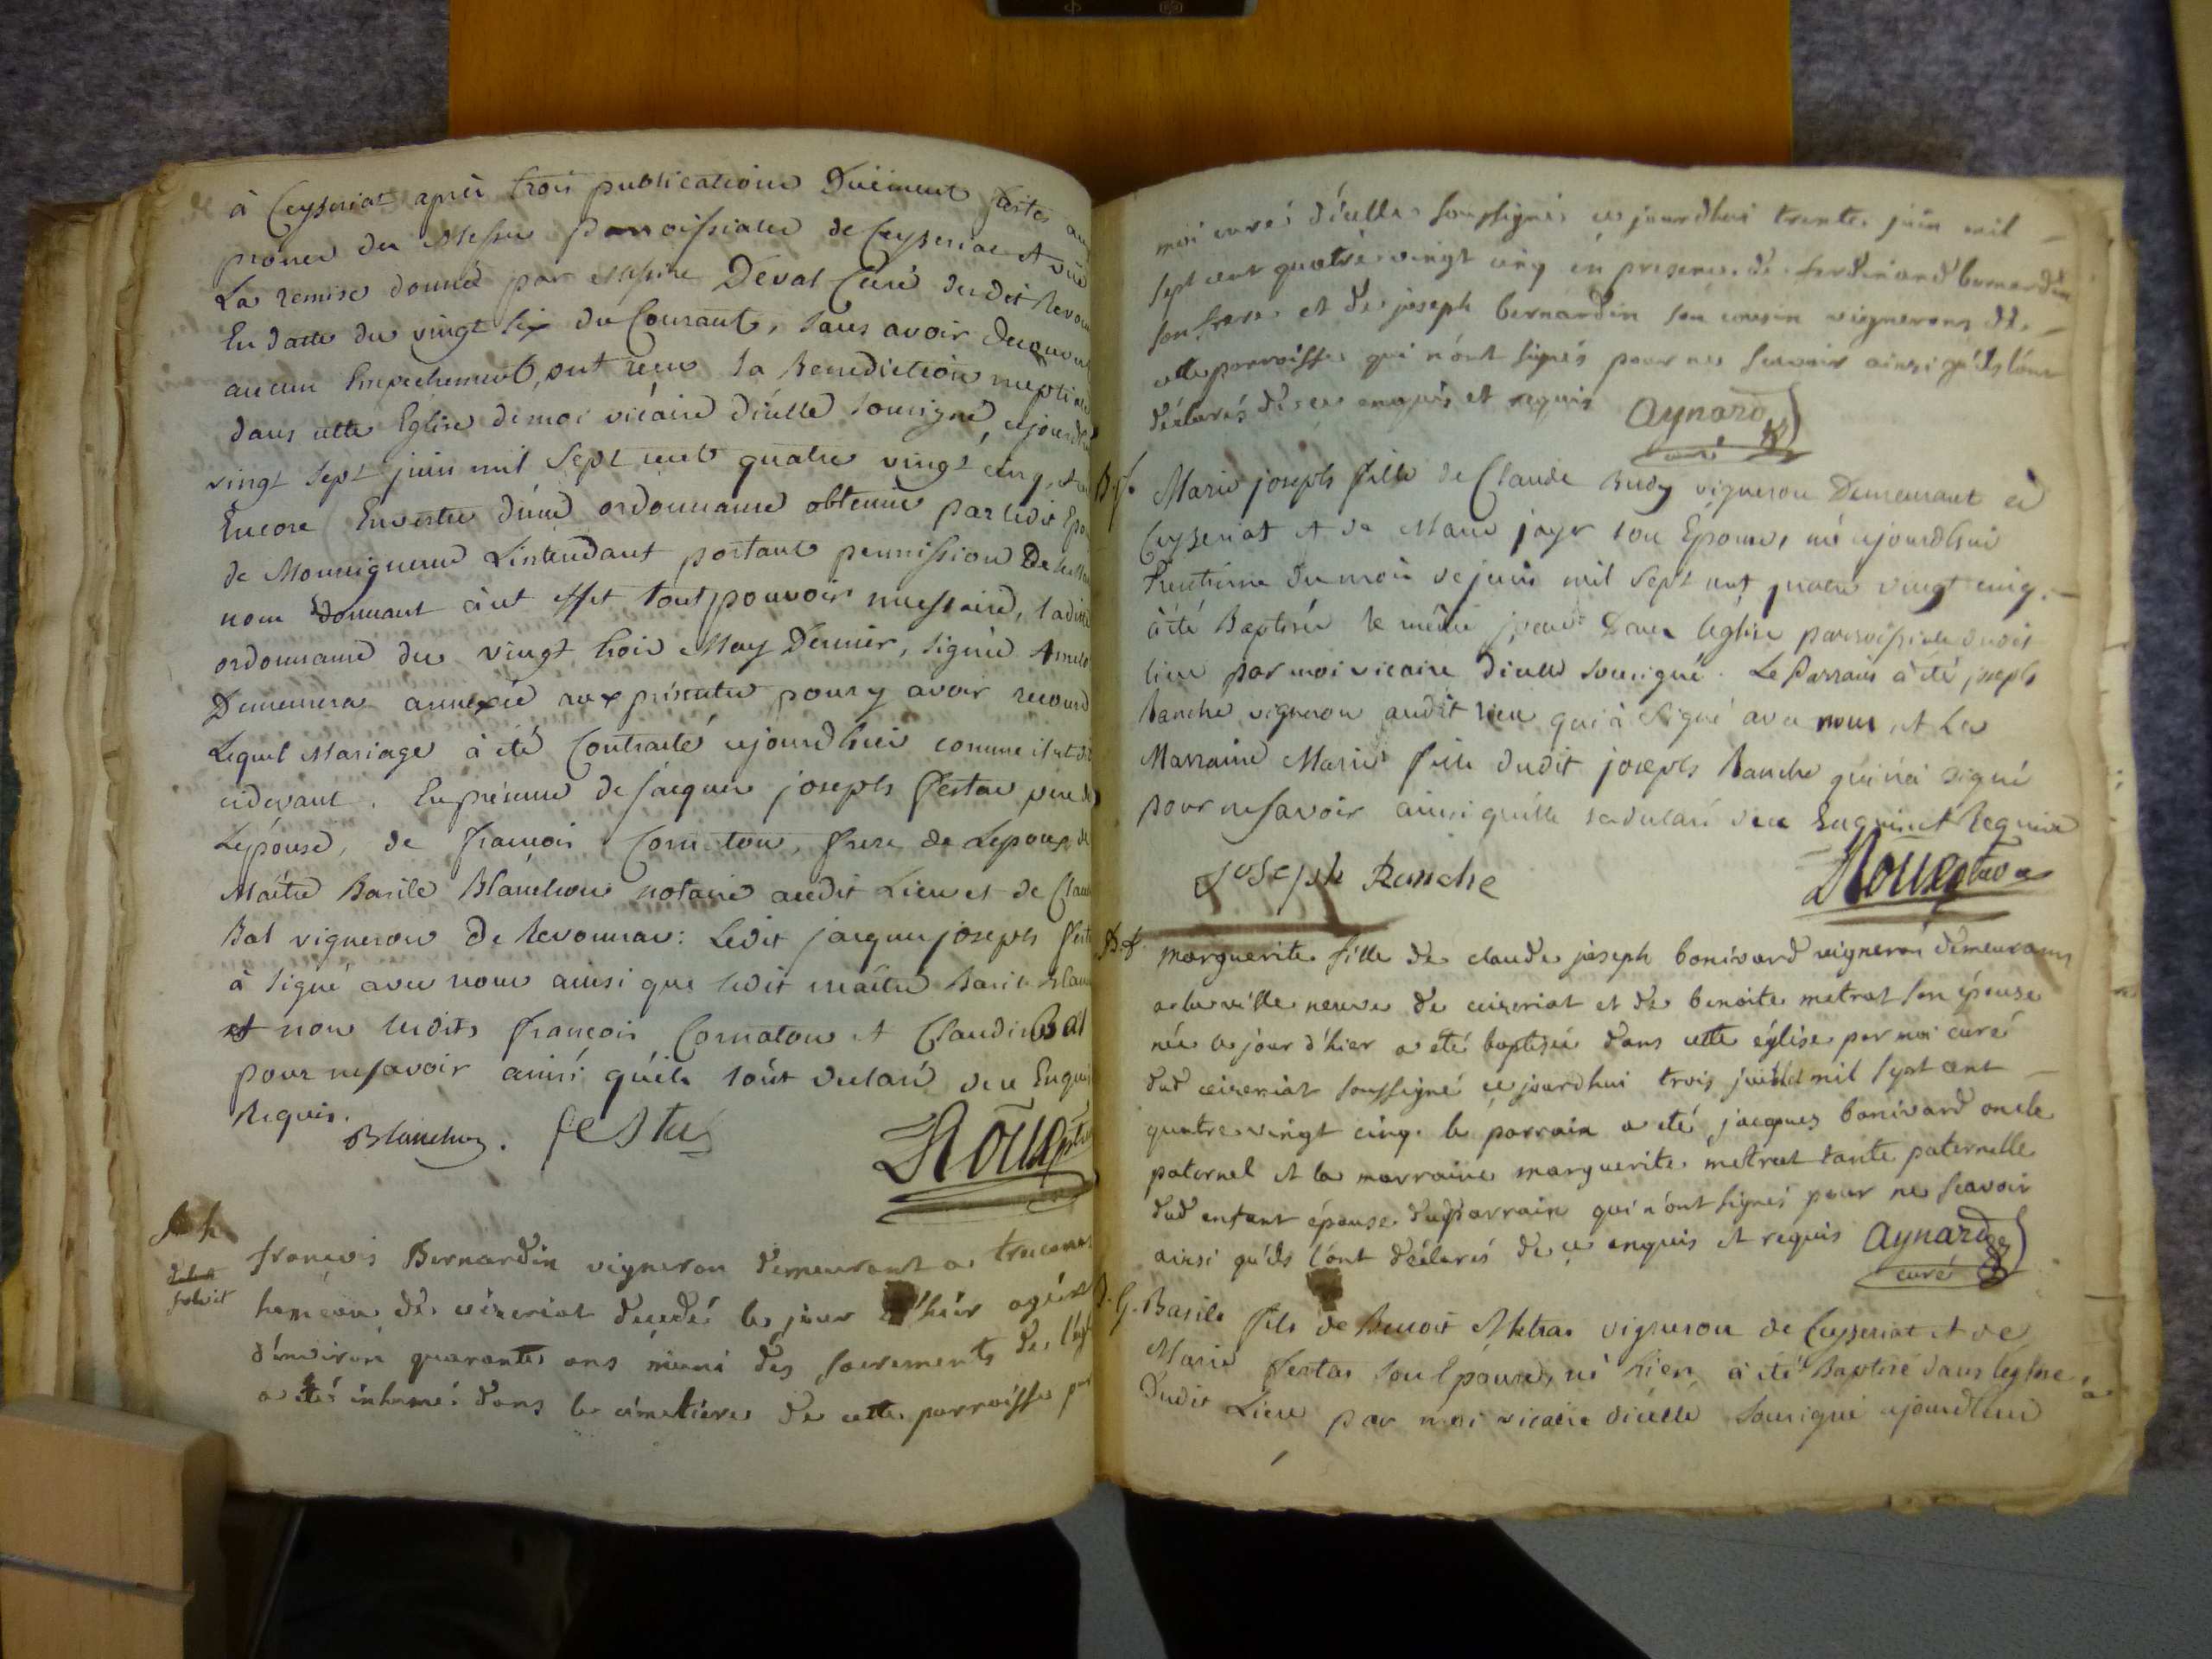 à Ceyseriat après trois publications Duëment faites au
prones des Messes parroissiales de Ceyseriat et vue
La remise donné par Messire Deval Curé dudit Revon
En datte du vingt six du Courant, sans avoir decouvert
aucun Empechement, ont reçu la Benediction nuptiale
dans cette Eglise de moi vicaire d'icelle sousigné, cejourdhui
vingt sept juin mil Sept cent quatre vingt cinq, et
Encore Envertu d'une ordonnance obtenue par ledit Epo
de Monseigneur L'intendant portant permission De
nous donnant à cet effet tout pouvoir necessaire, ladite
ordonnance du vingt trois May Dernier, signée Amelo
Demeurera annexée aux présentes pour y avoir recours
Lequel Mariage à été Contracté cejourdhui comme il est dit
cidevant. En présence de Jacques joseph festas pere de
L'épouse, de françois Cornaton, frere de Lepoux, de
Maître Basile Blanchon notaire audit Lieu et de Claude
Bal vigneron de Revonnas: Ledit jacques joseph festa
à signé avec nous ainsi que ledit maître Basile Blan
et non lesdits françois Cornaton et Claude Bal
pour ne savoir ainsi qu'ils l'ont declaré de ce Enquis
Requis.
Blanchon. festas
Rouph
françois Bernardin vigneron demeurant a
hameau de ceizeriat decedé le jour d'hier agé
d'environ quarante ans muni des sacrements de l'egl
a été inhumé dans le cimetière de cette parroisse par
moi curé d'icelle soussigné ce jourdhui trente juin mil
sept cent quatre vingt cinq en presence de ferdinand bernardin
son frere et de joseph bernardin son cousin vignerons de
cette parroisse qui n'ont signés pour ne scavoir ainsi qu'ils l'ont
déclarés de ce enquis et requis Aynard
curé
B. f. Marie joseph fille de Claude Vigneron Demeurant à
Ceyseriat et de Marie jayr son Épouse, né cejourdhui
Trentieme du mois de juin mil Sept cent quatre vingt cinq.
à été Baptisée le même jour Dans l'église parroissiale dudit
lieu par moi vicaire d'icelle sousigné. Le Parrain à été joseph
Ranche vigneron audit lieu qui à Signé avec nous, et La
Marraine Marie fille dudit joseph Ranche qui n'a signé
pour ne savoir ainsi qu'elle l'a declaré de ce Enquise et Requise
Joseph Ranche
B. f. marguerite fille de claude joseph bonivard vigneron demeurant
a la ville neuve de ceizeriat et de benoite metrat son épouse
née le jour d'hier a eté baptisée dans cette église par moi curé
dud ceizeriat soussigné ce jourdhui trois juillet mil sept cent
quatre vingt cinq. le parrain a eté jacques bonivard oncle
paternel et la marraine marguerite metrat tante paternelle
dud enfant épouse dud parrain qui n'ont signés pour ne scavoir
ainsi qu'ils l'ont déclarés de ce enquis et requis Aynard
curé
B. G. Basile fils de Benoit Metras vigneron de Ceyseriat et de
Marie festas son Epouse, né hier, à été Baptisé dans leglise
Dudit Lieu par moi vicaire d'icelle sousigné cejourdhui